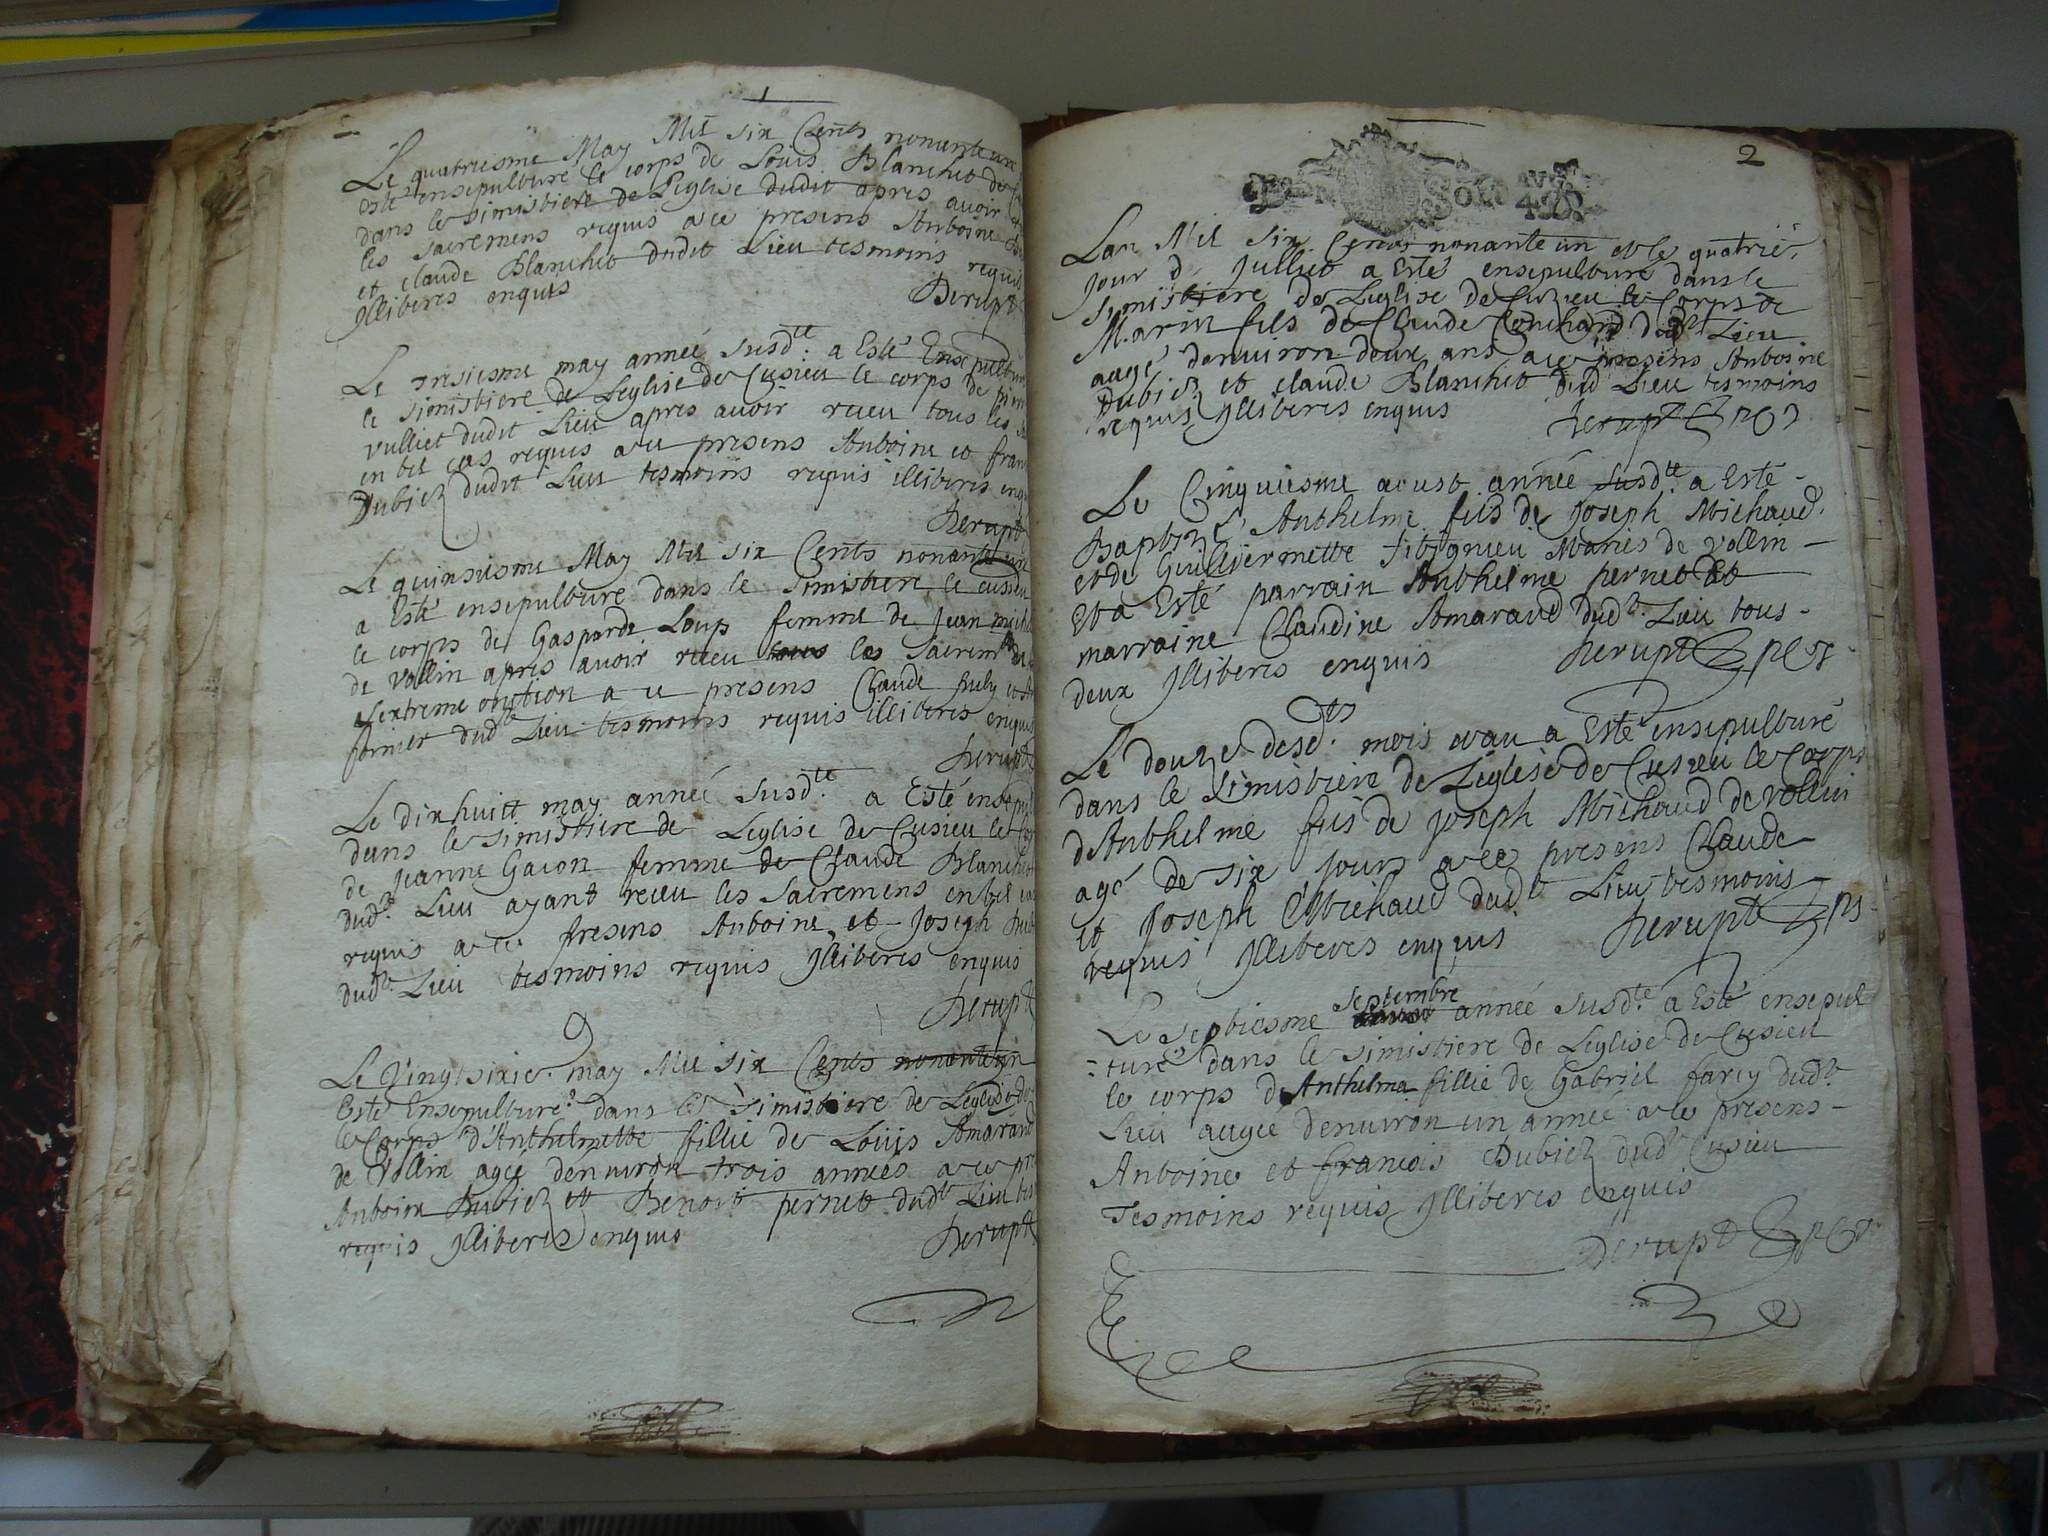 1
Le quatriesme May Mil six Cents nonante un
esté ensepulturé le corps de Louis Blanchet de
dans le simistiere de Leglise dudit apres avoir
les sacremens requis avec presens Anthoine
et claude Blanchet dudit Lieu tesmoins requis
jlliteres enquis
Derupt
Le tresiesme may année susd.te a Esté Ensepultur
le simistiere de Leglise de Cusieu le corps de pier
vulliet dudit Lieu apres avoir receu tous les
en tel cas requis avec presens Anthoine et fran
Dubiez dudit Lieu tesmoins requis illiteres enq
Derupt
Le quinsiesme May Mil six Cents nonante un
a Esté ensepulturé dans le Simistiere de cusieu
le corps de Gasparde Loup femme de Jean mich
de vollin apres avoir receu les Sacrem
extreme onction avec presens Claude
fornier dud.t Lieu tesmoins requis illiteres enquis
Derupt
Le dixhuitt may année susd.te a Esté ensepul
dans le simistiere de Leglise de Cusieu le Cor
de jeanne Gaion femme de Claude Blanchet
dud.t Lieu ayant receu les Sacremens entel cas
requis avec presens Anthoine et Joseph Dub
dud.t Lieu tesmoins requis jlliteres enquis
Derupt
Le Vingtsixie. may Mil six Cents nonante un
Esté Ensepulturé dans le simistiere de Leglise de
le Corps d'Anthelmette fillie de Loüis Amarand
de Vollin agée denviron trois années avec pre
Anthoine Dubiez et Benoit pernet dud.t Lieu tes
requis jlliteres enquis
Derupt
2
Lan Mil six Cents nonante un et le quatrie.
jour de Julliet a Esté ensepulturé dans le
simistiere de Leglise de Cuzieu le Corps de
Marin fils de Claude Conchard dud.t Lieu
augé denviron deux ans avec presens Anthoine
Dubiez et claude Blanchet dud.t Lieu tesmoins
requis jlliteres enquis
Derupt
Le Cinquiesme aoust année susd.te a Esté
Baptizé Anthelme fils de Joseph Michaud
et de Guilliermette Tibignieu Mariés de vollin
Et a Esté parrain Anthelme pernet Et
marraine Claudine Amaraud dud.t Lieu tous
deux jlliteres enquis
Derupt
Le douze desd.ts mois et an a Esté ensepulturé
dans le Simistiere de Leglese de Cusieu le Corps
d'Anthelme fils de joseph Michaud de vollin
agé de six jours avec presens Claude
et Joseph Michaud dud.t Lieu tesmoins
requis jlliteres enquis
Derupt
Septembre
Le septiesme année susd.te a Esté ensepul
turé dans le simistiere de Leglise de Cusieu
le corps d'Anthelma fillie de Gabriel farcy dud.t
Lieu augée denviron un année avec presens
Anthoine et francois Dubiez dud.t Cusieu
Tesmoins requis jlliteres enquis
Derupt